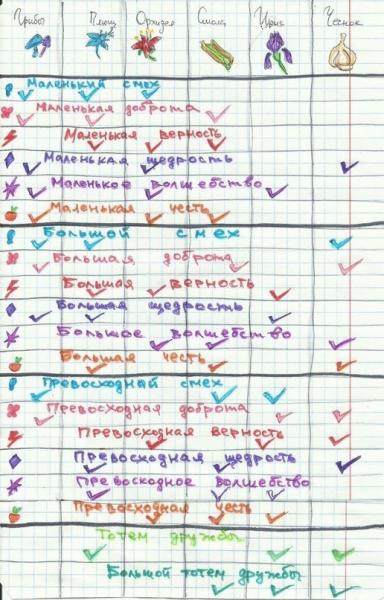 Грибы Плющ Орхидея Смола Ирис Чеснок
Маленький смех
Маленькая доброта
Маленькая верность
Маленькая щедрость
Маленькое волшебство
Маленькая честь
Большой смех
Большая доброта
Большая верность
Большая щедрость
Большое волшебство
Большая честь
Превосходный смех
Превосходная доброта
Превосходная верность
Превосходная щедрость
Превосходное волшебство
Превосходная честь
Тотем дружбы
Большой тотем дружбы